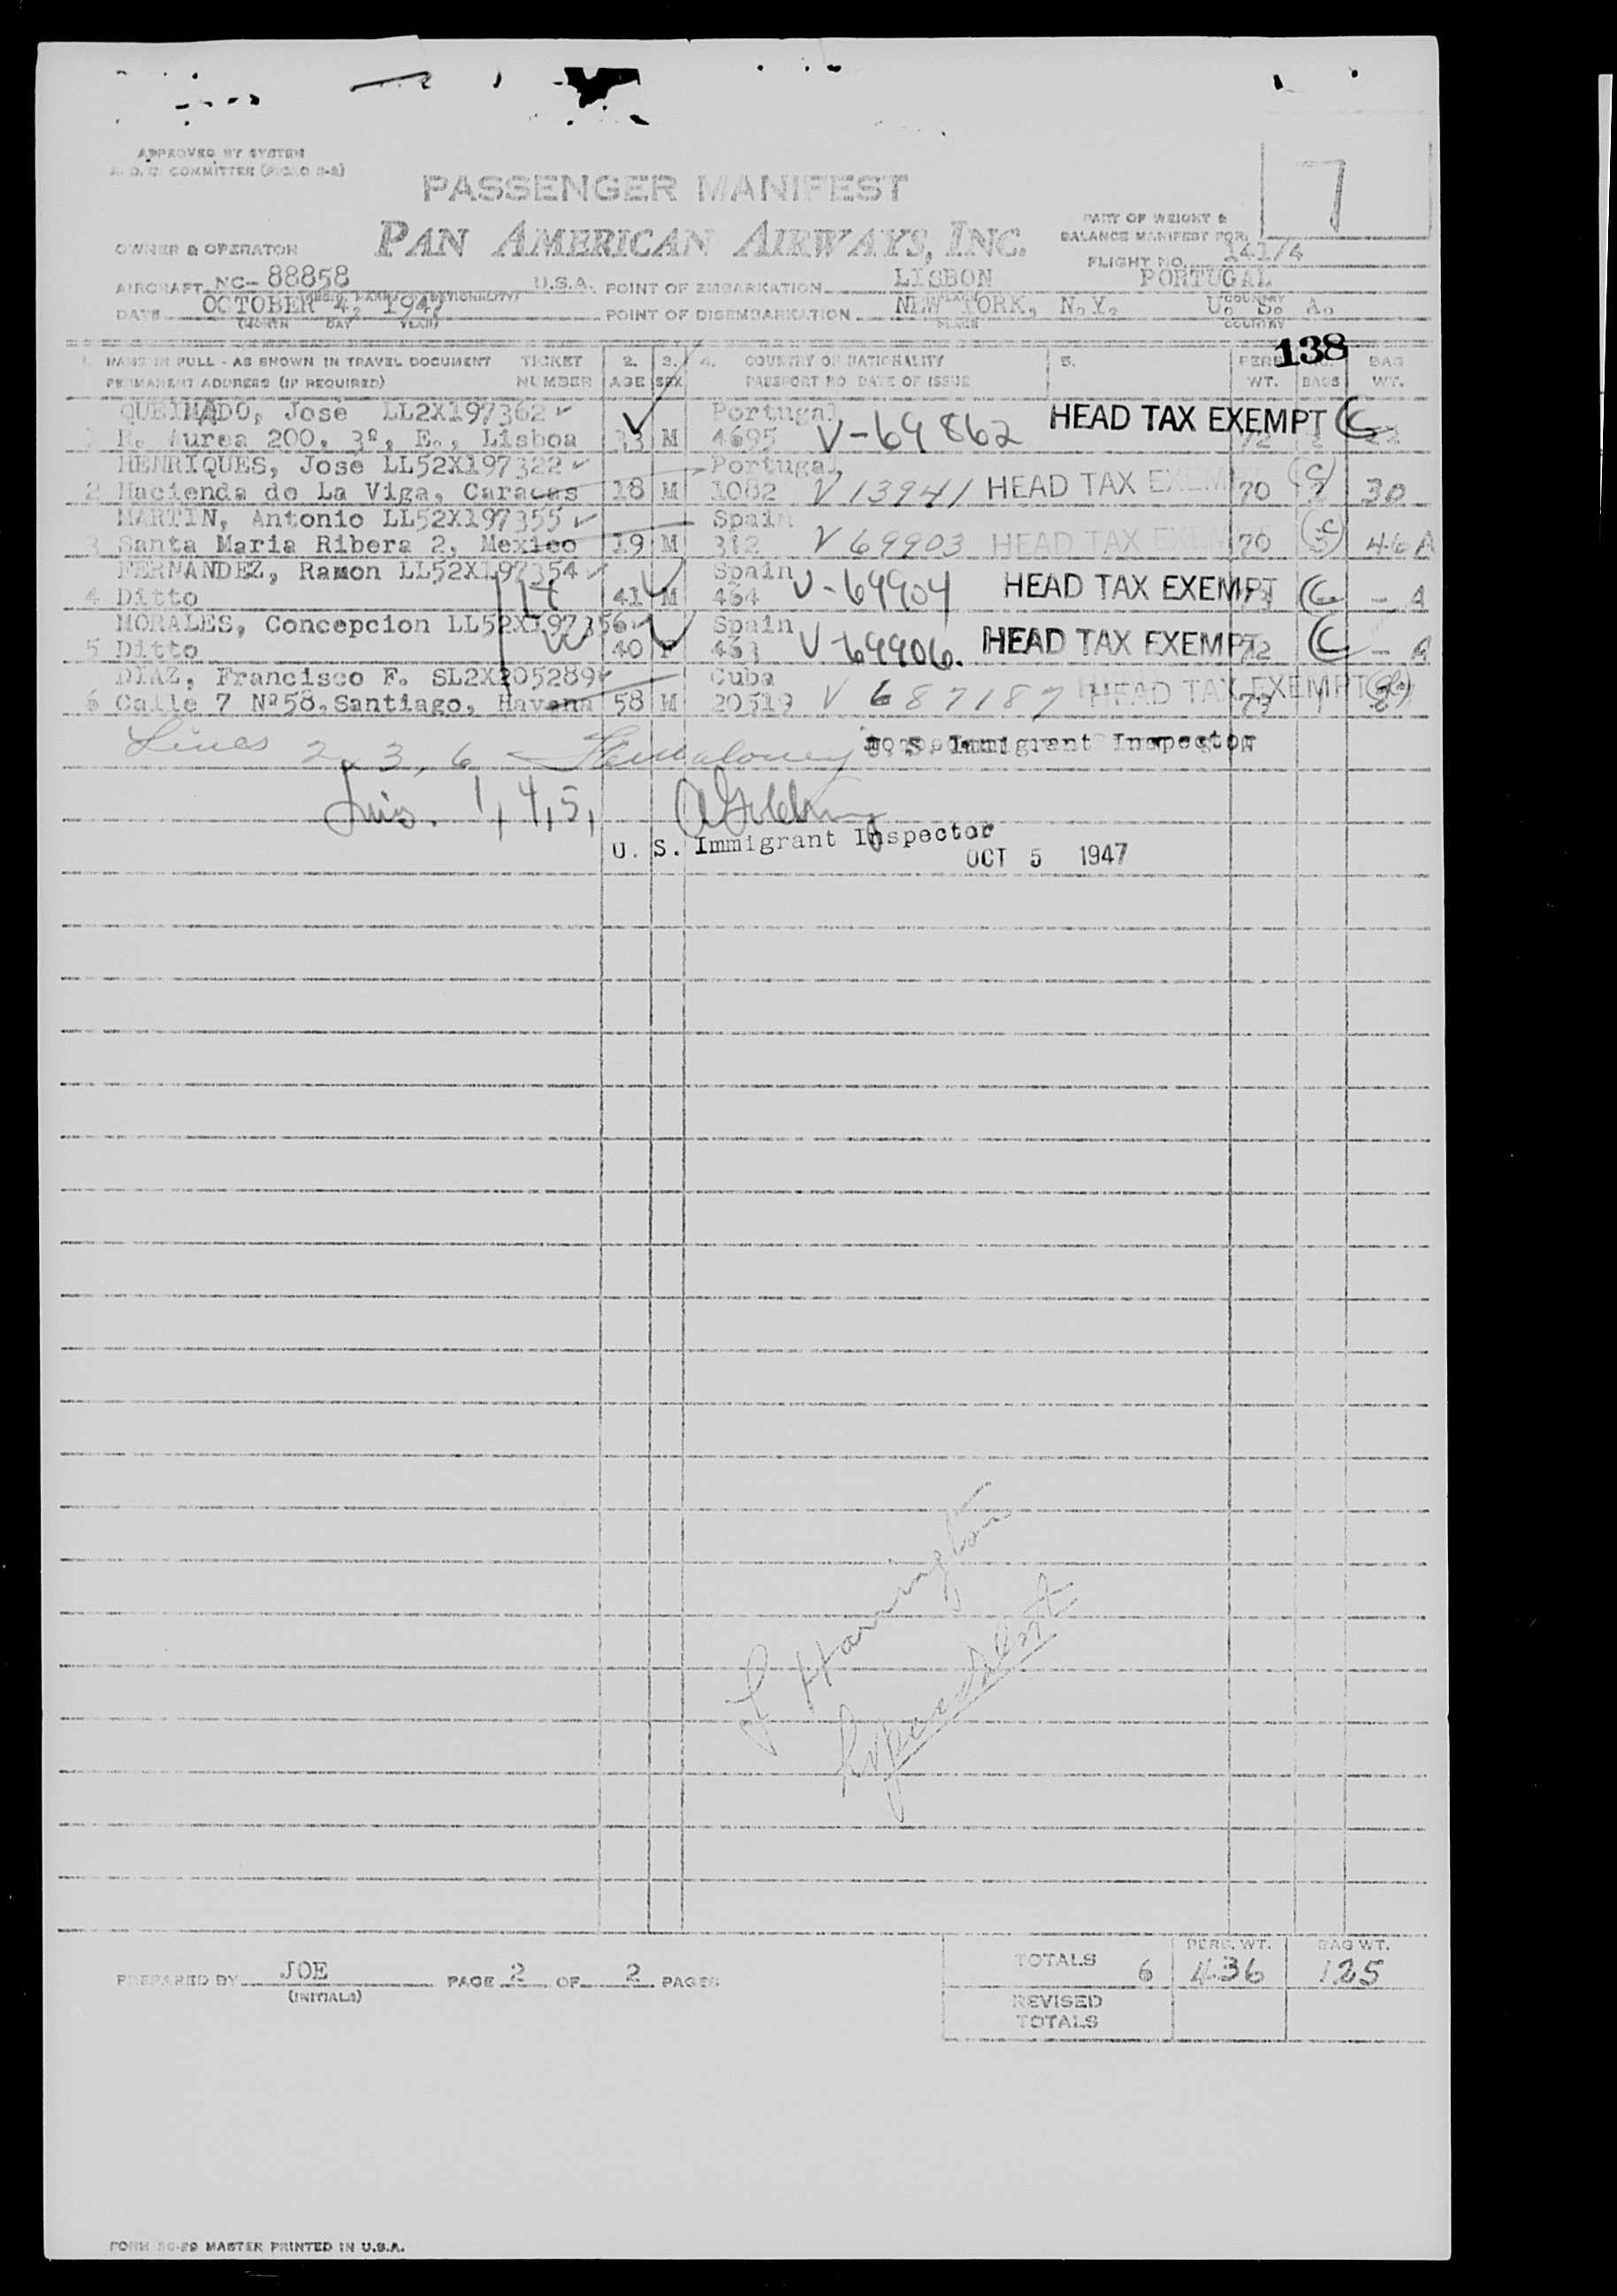 APPROVED BY SYSTEM
COMMITTEE
7
PASSENGER MANIFEST
PAN AMERICAN AIRWAYS, INC.
PART OF WEIGHT &
BALANCE MANIFEST FOR
OWNER & OPERATOR
FLIGHT NO. 141/4
AIRCRAFT NC- 88858 U.S.A. POINT OF EMBARKATION LISBON PORTUGAL
DATE OCTOBER 4, 1947 POINT OF DISEMBARKATION NEW YORK, N.Y. U. S. A.
(MONTH DAY YEAR) PLACE COUNTRY
138
1. NAME IN FULL - AS SHOWN IN TRAVEL DOCUMENT TICKET 2. 3. 4. COUNTRY OF NATIONALITY 5. PERS. NO. BAG
PERMANENT ADDRESS (IF REQUIRED) NUMBER AGE SEX PASSPORT NO DATE OF ISSUE WT. BAGS WT.
QUEIMADO, Jose LL2X197362 Portugal HEAD TAX EXEMPT
1 R. Aurea 200, 3º, E., Lisboa 33 M 4695 V-69862 72
HENRIQUES, Jose LL52X197322 Portugal
2 Hacienda de La Viga, Caracas 18 M 1082 V 13941 HEAD TAX EXEMPT 70 2 30
MARTIN, Antonio LL52X197355 Spain
3 Santa Maria Ribera 2, Mexico 19 M 312 V 69903 HEAD TAX EXEMPT 70 46 A
FERNANDEZ, Ramon LL52X197354 Spain
4 Ditto 41 M 464 V-69904 HEAD TAX EXEMPT - A
MORALES, Concepcion LL52X197356 Spain
5 Ditto 40 F 463 V-69906. HEAD TAX EXEMPT 72 - A
DIAZ, Francisco F. SL2X205289 Cuba
6 Calle 7 Nº58, Santiago, Havana 58 M 20519 V 687187 HEAD TAX EXEMPT 79
Lines 2, 3, 6 U. S. Immigrant Inspector
Lins. 1, 4, 5,
U. S. Immigrant Inspector
OCT 5 1947
J Harrington
PREPARED BY JOE PAGE 2 OF 2 PAGES
(INITIALS)
TOTALS 6 PERS. WT. 436 BAG WT. 125
REVISED
TOTALS
MASTER PRINTED IN U.S.A.